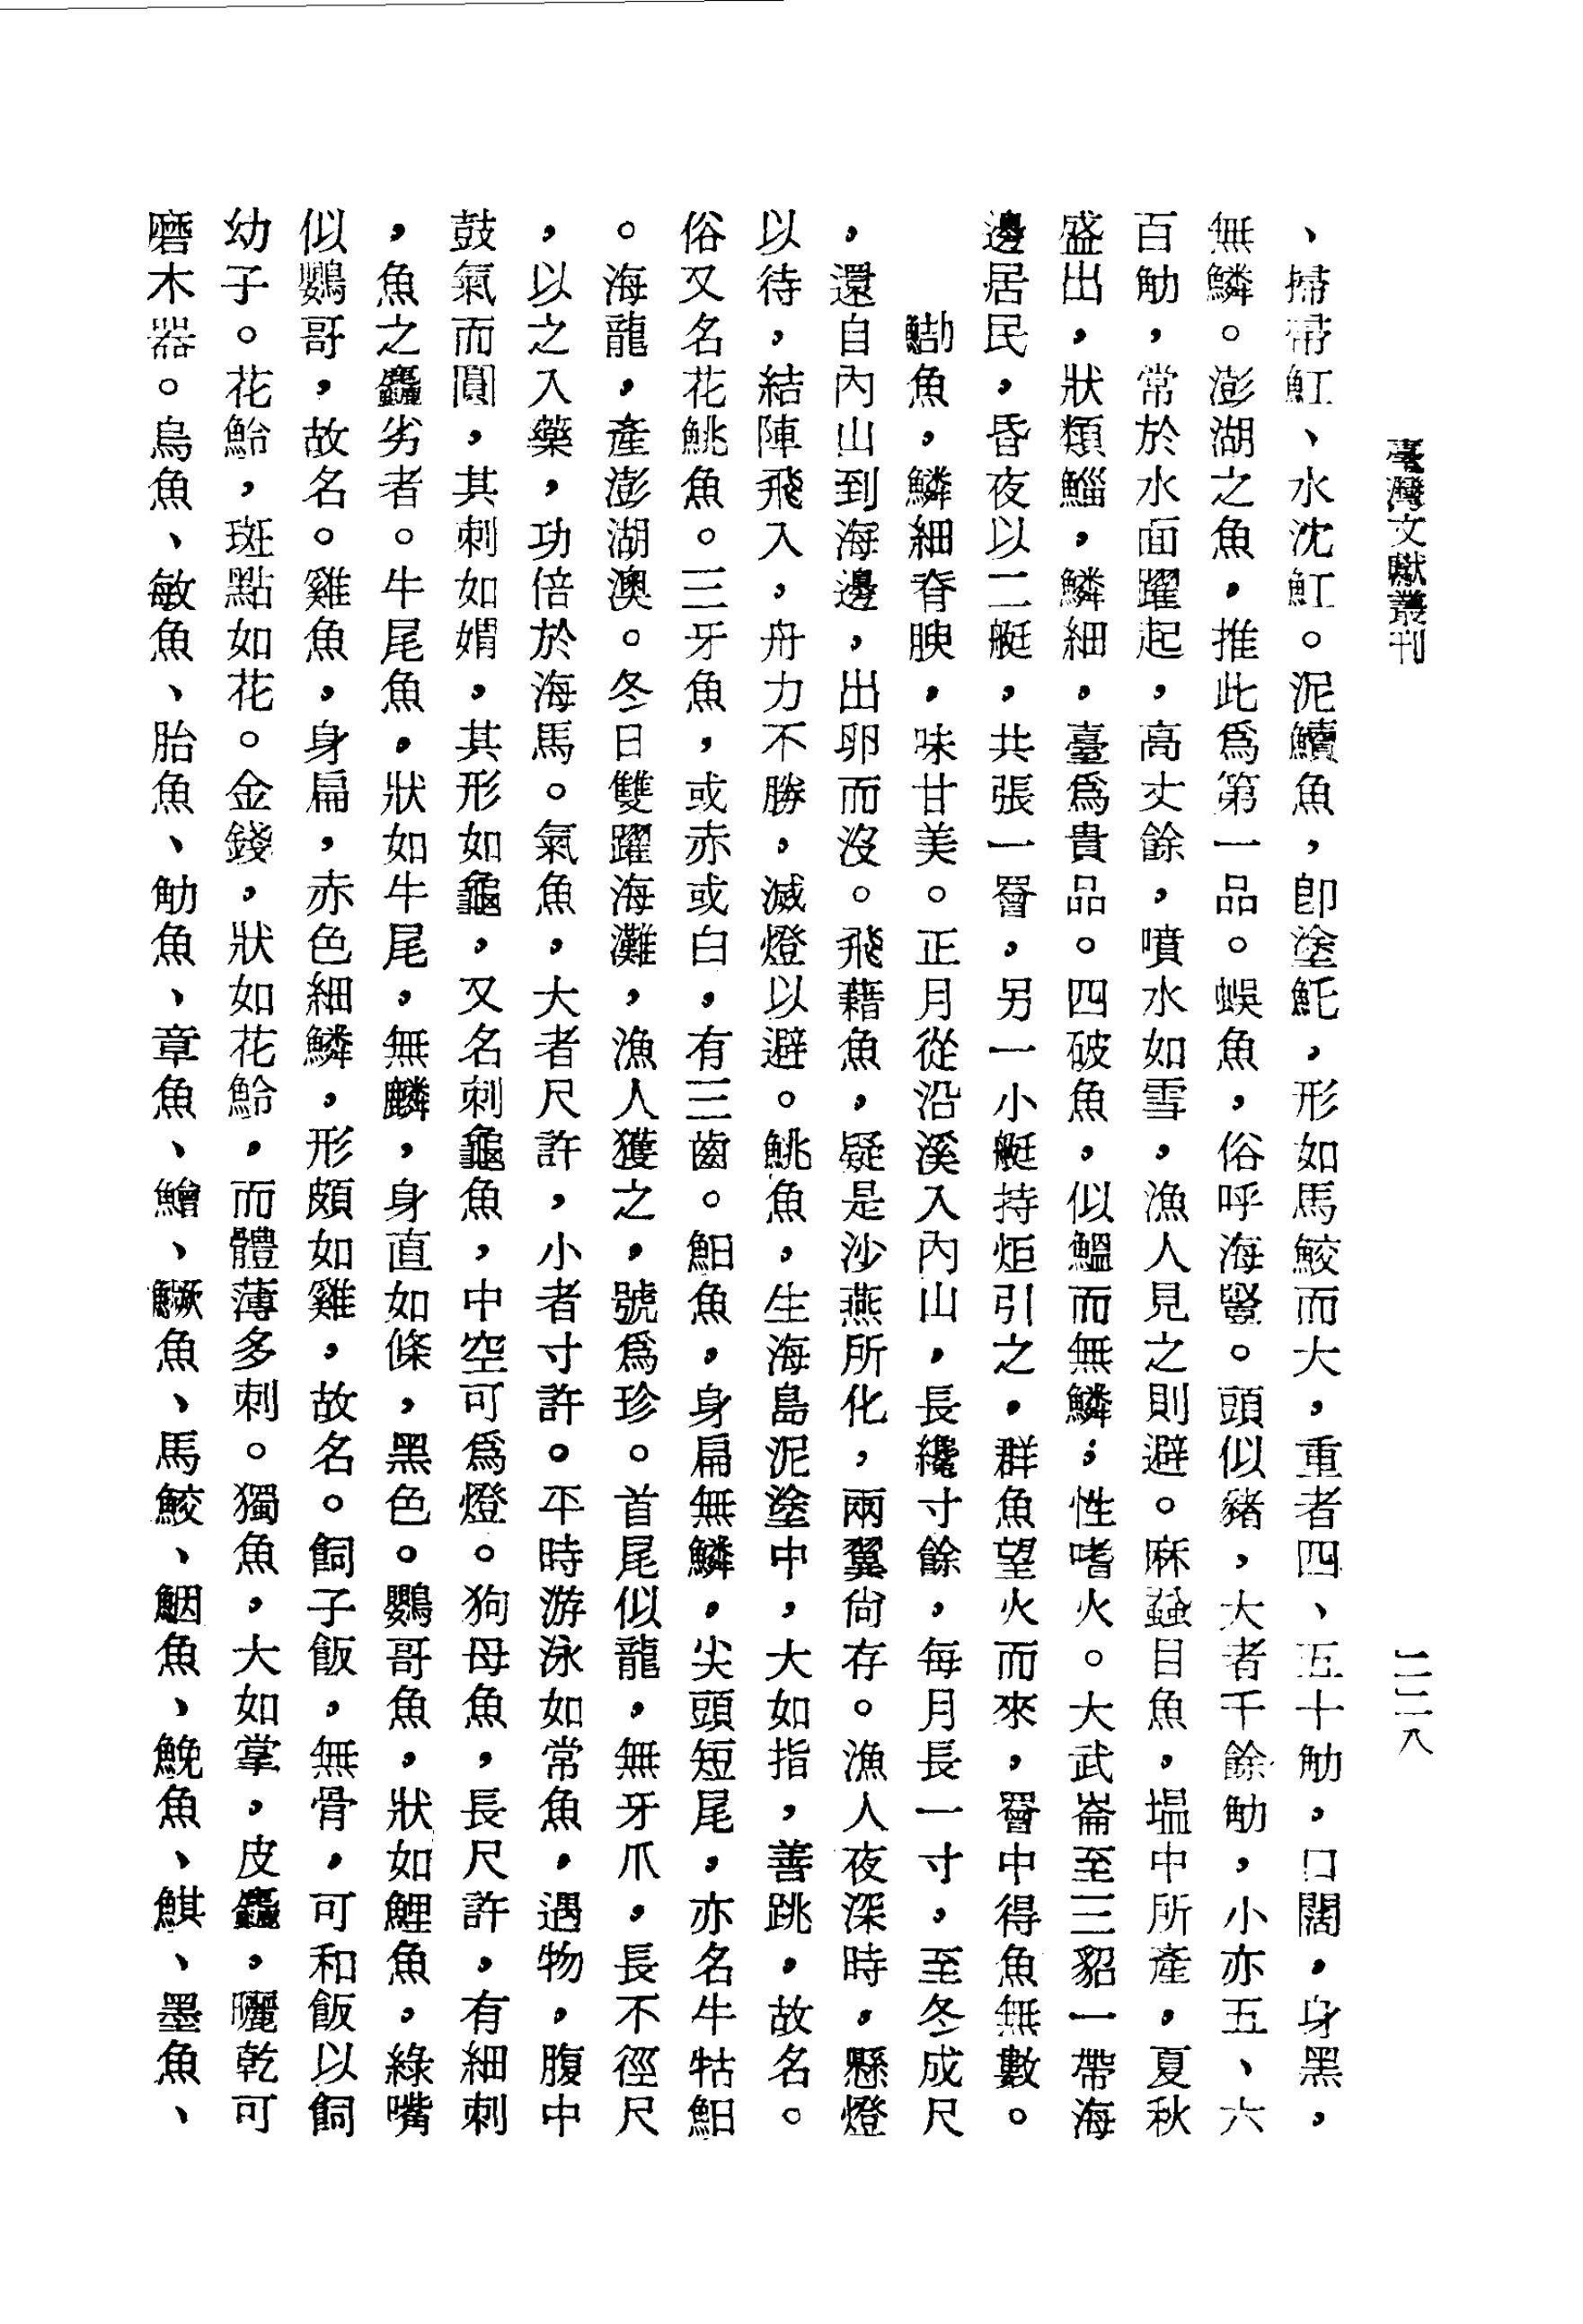 臺灣文獻叢刊
二二八
、掃帚魟、水沈魟。泥鱝魚，卽塗魠，形如馬鮫而大，重者四、五十觔，口闊，身黑，
無鱗。澎湖之魚，推此爲第一品。蜈魚，俗呼海豎。頭似豬，大者千餘觔，小亦五、六
百觔，常於水面躍起，高丈餘，噴水如雪，漁人見之則避。麻蝨目魚，塭中所產，夏秋
盛出，狀類鯔，鱗細，臺爲貴品。四破魚，似鰮而無鱗；性嗜火。大武崙至三貂一帶海
邊居民，昏夜以二艇，共張一罾，另一小艇持炬引之，群魚望火而來，罾中得魚無數。
魚，鱗細脊腴，味甘美。正月從沿溪入內山，長纔寸餘，每月長一寸，至冬成尺
，還自內山到海邊，出卵而沒。飛藉魚，疑是沙燕所化，兩翼尙存。漁人夜深時，懸燈
以待，結陣飛入，舟力不勝，滅燈以避。鮡魚，生海島泥塗中，大如指，善跳，故名。
俗又名花鮡魚。三牙魚，或赤或白，有三齒。䱇魚，身扁無鱗，尖頭短尾，亦名牛牯䱇
。海龍，產澎湖澳。冬日雙躍海灘，漁人獲之，號爲珍。首尾似龍，無牙爪，長不徑尺
，以之入藥，功倍於海馬。氣魚，大者尺許，小者寸許。平時游泳如常魚，遇物，腹中
鼓氣而圓，其刺如蝟，其形如龜，又名刺龜魚，中空可爲燈。狗母魚，長尺許，有細刺
，魚之麤劣者。牛尾魚，狀如牛尾，無麟，身直如條，黑色。鸚哥魚，狀如鯉魚，綠嘴
似鸚哥，故名。雞魚，身扁，赤色細鱗，形頗如雞，故名。飼子飯，無骨，可和飯以飼
幼子。花鮯，斑點如花。金錢，狀如花鮯，而體薄多刺。獨魚，大如掌，皮麤，曬乾可
磨木器。烏魚、敏魚、胎魚、觔魚、章魚、鱠、鱖魚、馬鮫、鮰魚、鮸魚、鯕、墨魚、